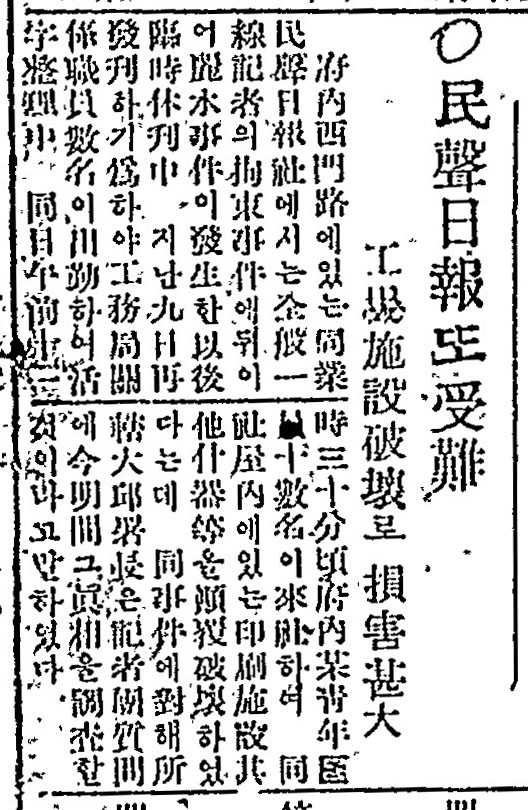 ○民聲日報또受難
工場施設破壞로 損害甚大
府內西門路에있는同業
民聲日報社에서는全般一
線記者의拘束事件에뒤이
어麗水事件이發生한以後
臨時休刊中 지난九日再
發刊하기爲하야工務局關
係職員數名이出勤하여活
字整理中 同日午前十二
時三十分頃府內某靑年團
員十數名이來社하여 同
社屋內에있는印刷施設其
他什器等을顚覆破壞하였
다는데 同事件에對해所
轄大邱署長은記者團質問
에今明間그眞相을調査할
것이라고말하였다